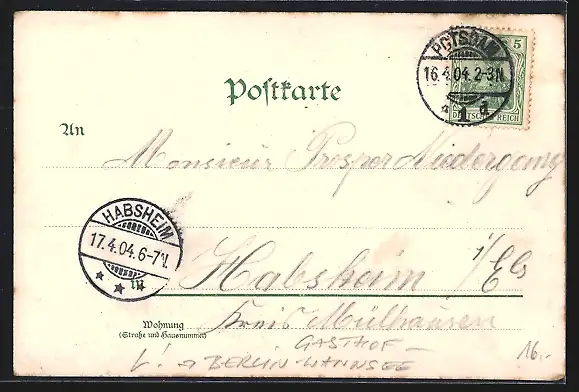 POTSDAM
16.4.04.2-3N.
* 1 d
5
DEUTSCHES REICH
Postkarte
An
Monsieur Prosper Niedergang
HABSHEIM
17.4.04.6-7V.
in Habsheim i/Els
Wohnung
(Straße und Hausnummer)
Kreis Mülhausen
GASTHOF –
BERLIN-WANNSEE
16.-